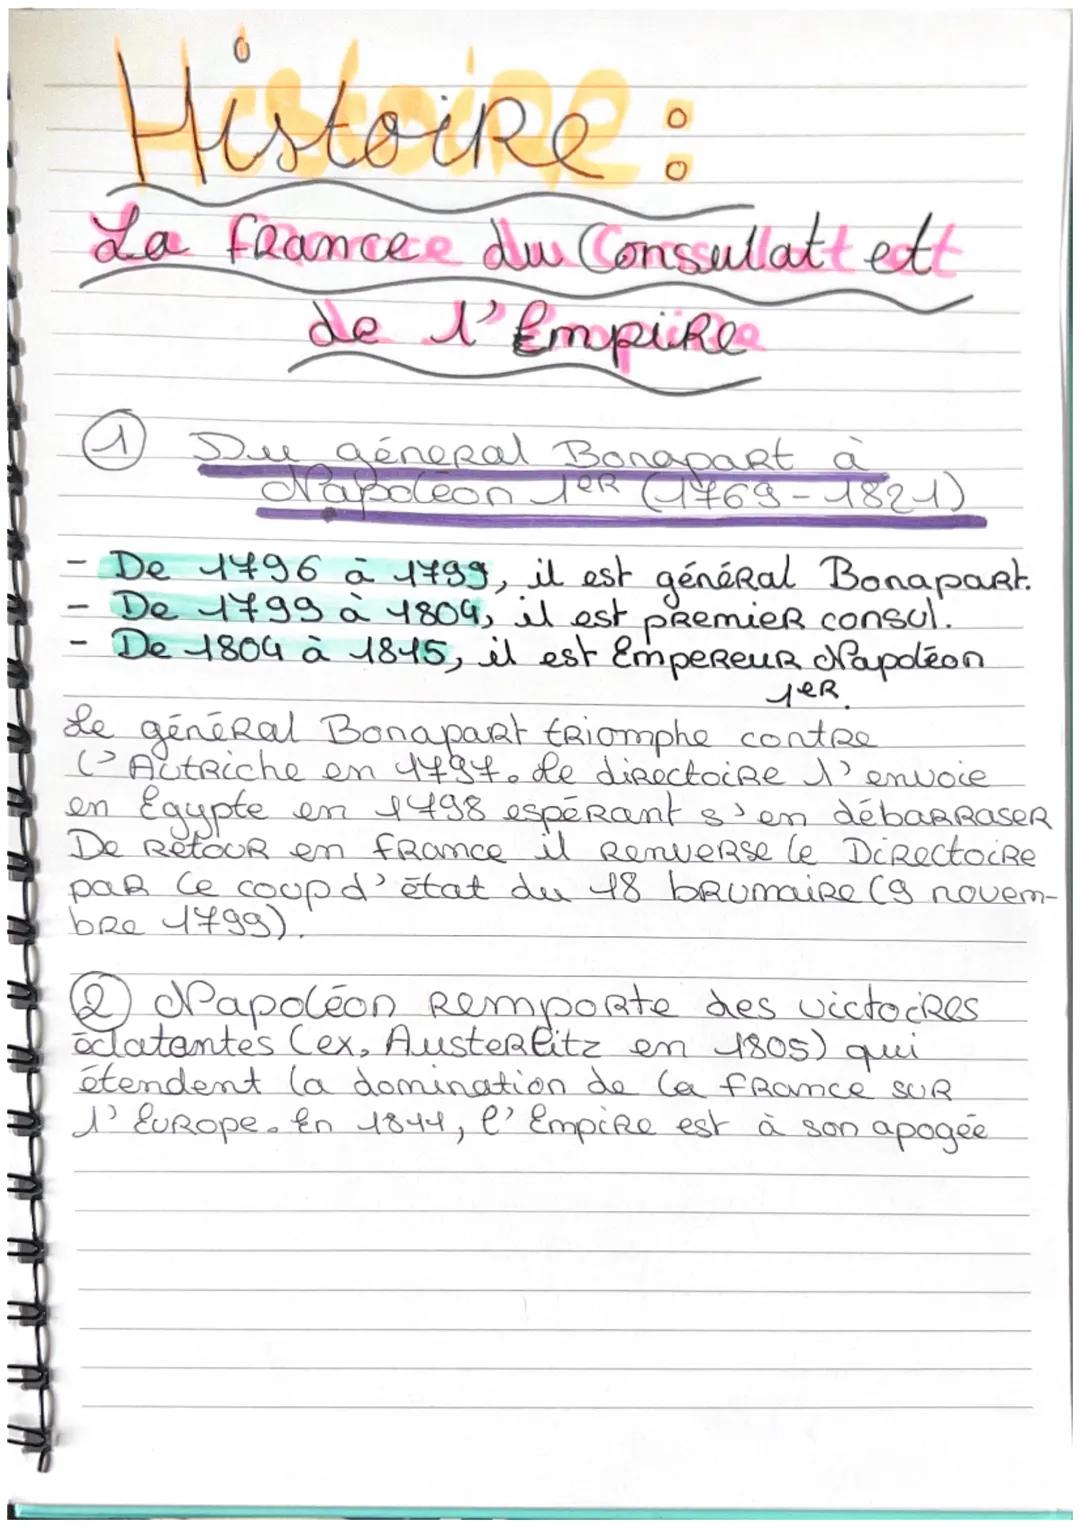 Histoire :
La france du Consulat et
de l'Empire
① Du géneral Bonapart à
Napoléon 1er (1769-1821)
- De 1796 à 1799, il est général Bonapart.
- De 1799 à 1804, il est premier consul.
- De 1804 à 1815, il est Empereur Napoléon
1er.
Le général Bonapart triomphe contre
l'Autriche en 1797. Le directoire l'envoie
en Égypte en 1798 espérant s'en débarraser
De retour en france il renverse le Directoire
par le coup d'état du 18 brumaire (9 novem-
bre 1799).
② Napoléon remporte des victoires
éclatantes (ex, Austerlitz en 1805) qui
étendent la domination de la france sur
l'Europe. En 1811, l'Empire est à son apogée